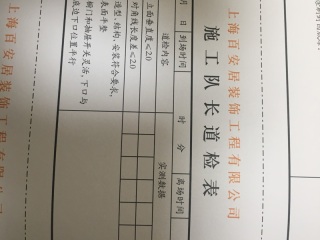 上海百安居装饰工程有限公司
施工队长道检表
月 日 到场时间 时 分 离场时间
道检内容 实测数据
立面垂直度≤2.0
对角线长度差≤2.0
造型、结构、安装符合要求，
表面平整
橱门和抽屉开关灵活，下口与
底边下口位置平行
上海百安居装饰工程有限公